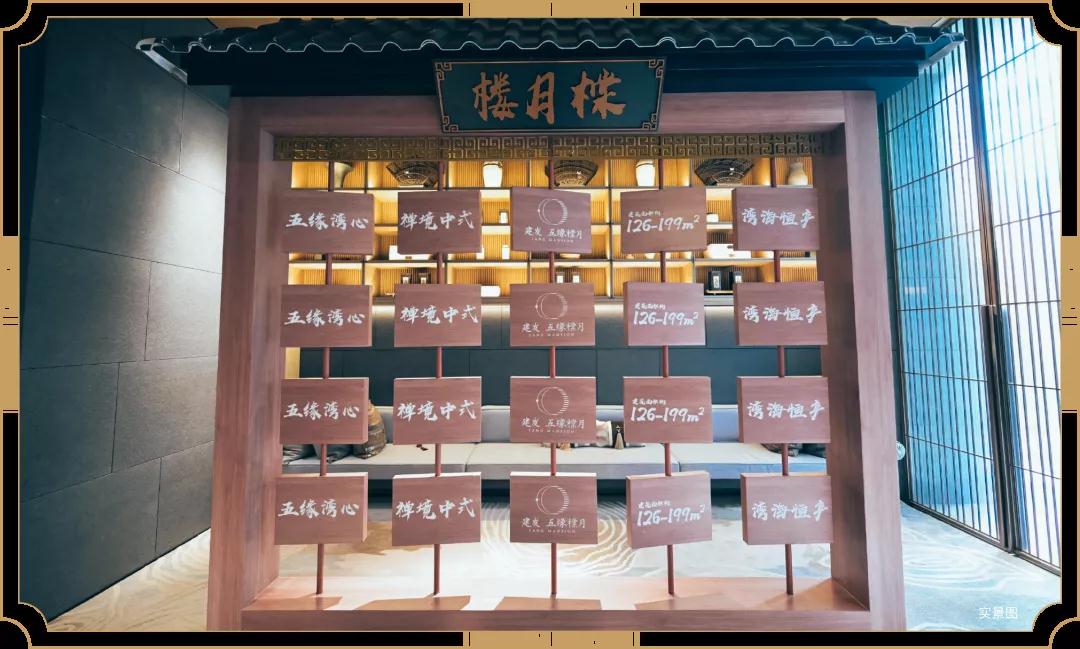 樘月楼
五缘湾心 禅境中式 建发 五缘樘月 TANG MANSION 建筑面积约 126-199m² 湾海恒享
五缘湾心 禅境中式 建发 五缘樘月 TANG MANSION 建筑面积约 126-199m² 湾海恒享
五缘湾心 禅境中式 建发 五缘樘月 TANG MANSION 建筑面积约 126-199m² 湾海恒享
五缘湾心 禅境中式 建发 五缘樘月 TANG MANSION 建筑面积约 126-199m² 湾海恒享
实景图